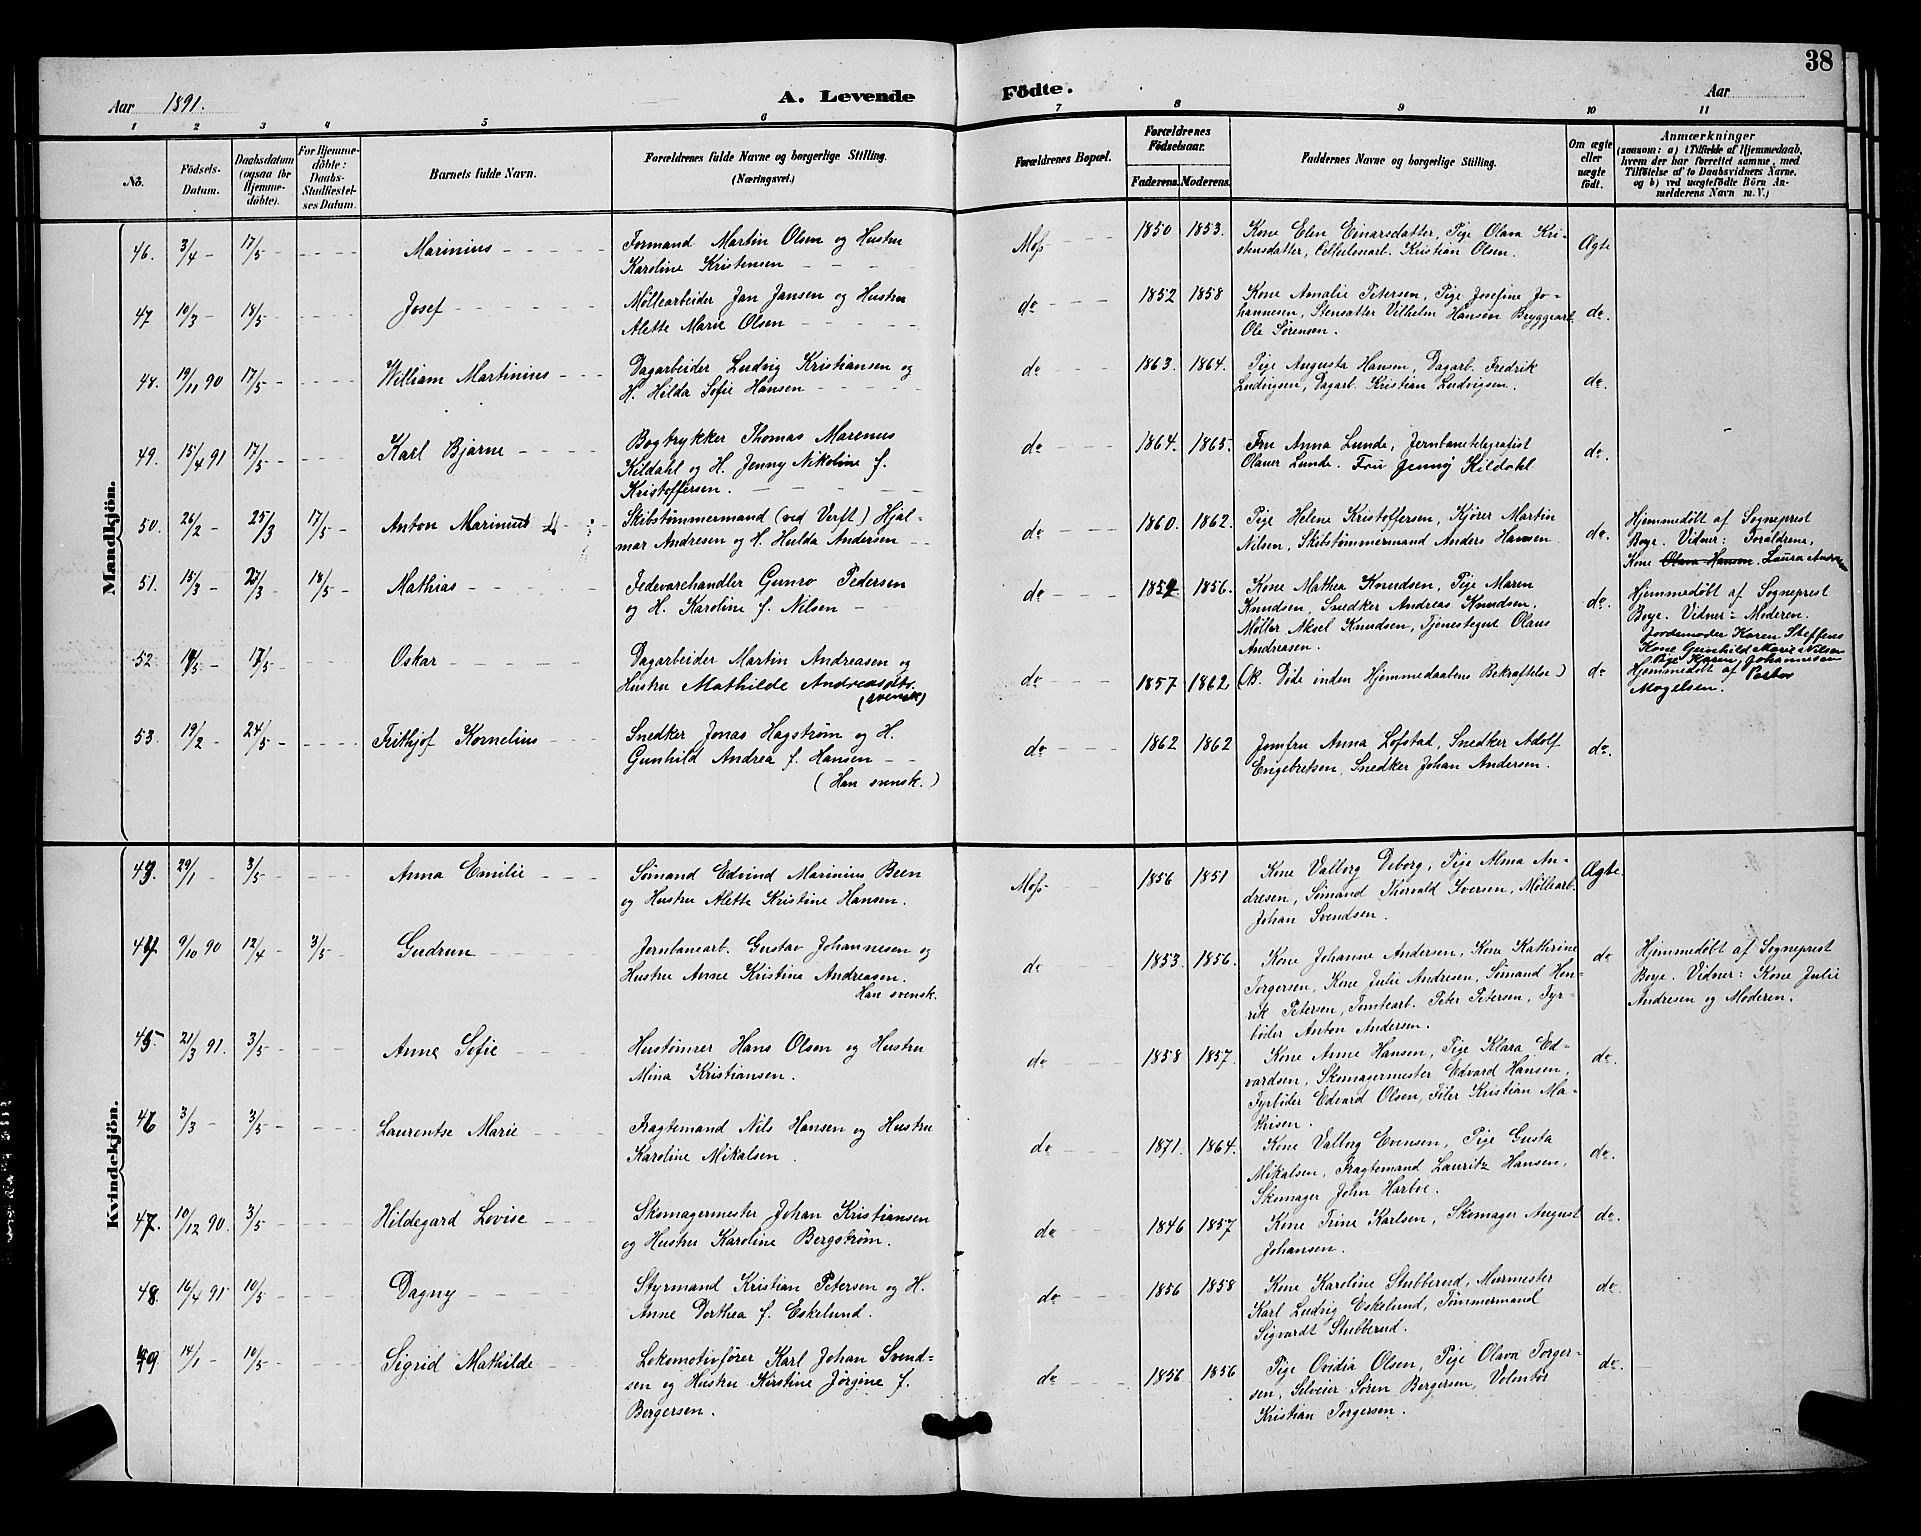 38
Aar 1891. A. Levende Födte. Aar
1 2 3 4 5 6 7 8 9 10 11
No.
Födsels-Datum.
Daabsdatum (ogsaa for Hjemme-döbte).
For Hjemme-döbte: Daabs-Stadfæstel-ses Datum.
Barnets fulde Navn.
Forældrenes fulde Navne og borgerlige Stilling. (Næringsvei.)
Forældrenes Bopæl.
Forældrenes Födselsaar.
Faderens. Moderens.
Faddernes Navne og borgerlige Stilling.
Om ægte eller uægte födt.
Anmærkninger
(saasom: a) i Tilfælde af Hjemmedaab,
hvem der har forrettet samme, med
Tilföielse af to Daabsvidners Navne,
og b) ved uægtefödte Börn An-
melderens Navn m. V.)
Mandkjön.
46. 3/4 - 17/5 - Marinius Formand Martin Olsen og Hustru Moss 1850 1853. Kone Elen Einarsdatter, Pige Olava Kri- Ægte
Karoline Kristensen stensdatter, Cellulosearb. Kristian Olsen.
47 10/3 - 18/5 - Josef Møllearbeider Jan Jansen og Hustru do 1852 1858 Kone Amalie Petersen, Pige Josefine Jo- do.
Alette Marie Olsen hannesen, Stensætter Vilhelm Hansen Bryggearb.
Ole Sørensen.
48. 19/11 90 17/5 - William Martinius Dagarbeider Ludvig Kristiansen og do 1863. 1864. Pige Augusta Hansen, Dagarb. Fredrik do.
H. Hilda Sofie Hansen Ludvigsen, Dagarb. Kristian Ludvigsen.
49. 15/4 91 17/5 - Karl Bjarne Bogtrykker Thomas Marenus do 1864. 1865. Fru Anna Lunde, Jernbanetelegrafist do.
Kildahl og H. Jenny Nikoline f. Olaner Lunde. Fru Jenny Kildahl
Kristoffersen.
50. 26/2 - 25/3 17/5 - Anton Marinius Skibstømmermand (ved Verft) Hjal- do 1860. 1862. Pige Helene Kristoffersen, Kjører Martin do. Hjemmedøbt af Sogneprest
mar Andresen og H. Hulda Andersen Nilsen, Skibstømmermand Anders Hansen. Boye. Vidner: Forældrene,
Kone Olava Hansen. Laura
51. 15/3 - 23/3 - 18/5 - Mathias Fedevarehandler Gunro Pedersen do 1854 1856. Kone Mathea Knudsen, Pige Maren do. Hjemmedøbt af Sogneprest
og H. Karoline f. Nilsen Knudsen, Snedker Andreas Knudsen, Boye. Vidner: Moderen.
Møller Aksel Knudsen, Tjenestegut Olaus Jordemoder Karen Steffens
Andreasen. Kone Gunhild Marie Nilsen
Pige Karen Johannesen
52 - 17/5 - Oskar Dagarbeider Martin Andreasen og do 1857 1862 (NB. Døde inden Hjemmedaabens Bekræftelse) do Hjemmedøbt af Pastor
Hustru Mathilde Andreasdtr. Mogelsen.
(svensk)
53. 19/2 - 24/5 - Frithjof Kornelius Snedker Jonas Hagstrøm og H. do 1862 1862 Jomfru Anna Lofstad, Snedker Adolf do.
Gunhild Andrea f. Hansen Engebretsen, Snedker Johan Andersen.
(Han svensk.)
Kvindekjön.
43. 29/1 3/5 - Anna Emilie Sømand Edvind Marinius Been Moss 1856 1851 Kone Valborg Deborg, Pige Alma An- Ægte.
og Hustru Alette Kristine Hansen. dresen, Sømand Thorvald Iversen, Møllearb.
Johan Svendsen.
44 9/10 90 12/4 - 3/5 - Gudrun Jernbanearb. Gustav Johannesen og do 1853. 1856. Kone Johanne Andersen, Kone Kathrine do Hjemmedøbt af Sogneprest
Hustru Anne Kristine Andreasen. Torgersen, Kone Julie Andresen, Sømand Hen- Boye. Vidner: Kone Julie
Han svensk. rik Petersen, Tomtearb. Peter Petersen, Fyr- Andresen og Moderen.
bøder Anton Andersen.
45. 21/3 91. 3/5 - Anne Sofie Hustømrer Hans Olsen og Hustru do 1858 1857. Kone Anne Hansen, Pige Klara Ed- do.
Mina Kristiansen. vardsen, Skomagermester Edvard Hansen,
Fyrbøder Edvard Olsen, Filer Kristian Ma-
thisen.
46 3/3 - 3/5 - Laurentse Marie Fragtemand Nils Hansen og Hustru do 1871. 1864. Kone Valborg Evensen, Pige Gusta do.
Karoline Mikalsen. Mikalsen, Fragtemand Lauritz Hansen,
Skomager John Harboe.
47. 10/12 90. 3/5 - Hildegard Lovise Skomagermester Johan Kristiansen do 1846 1857 Kone Trine Karlsen, Skomager August do.
og Hustru Karoline Bergstrøm. Johansen.
48. 16/4 91 10/5 - Dagny Styrmand Kristian Petersen og H. do 1856 1858 Kone Karoline Stubberud, Murmester do.
Anne Dorthea f. Eskelund. Karl Ludvig Eskelund, Tømmermand
Sigvardt Stubberud.
49 14/1 - 10/5 - Sigrid Mathilde Lokomotivfører Karl Johan Svend- do 1856 1856 Pige Ovidia Olsen, Pige Olava Torger- do.
sen og Hustru Kirstine Jørgine f. sen, Selveier Søren Bergersen, Volontør
Bergersen. Kristian Torgersen.